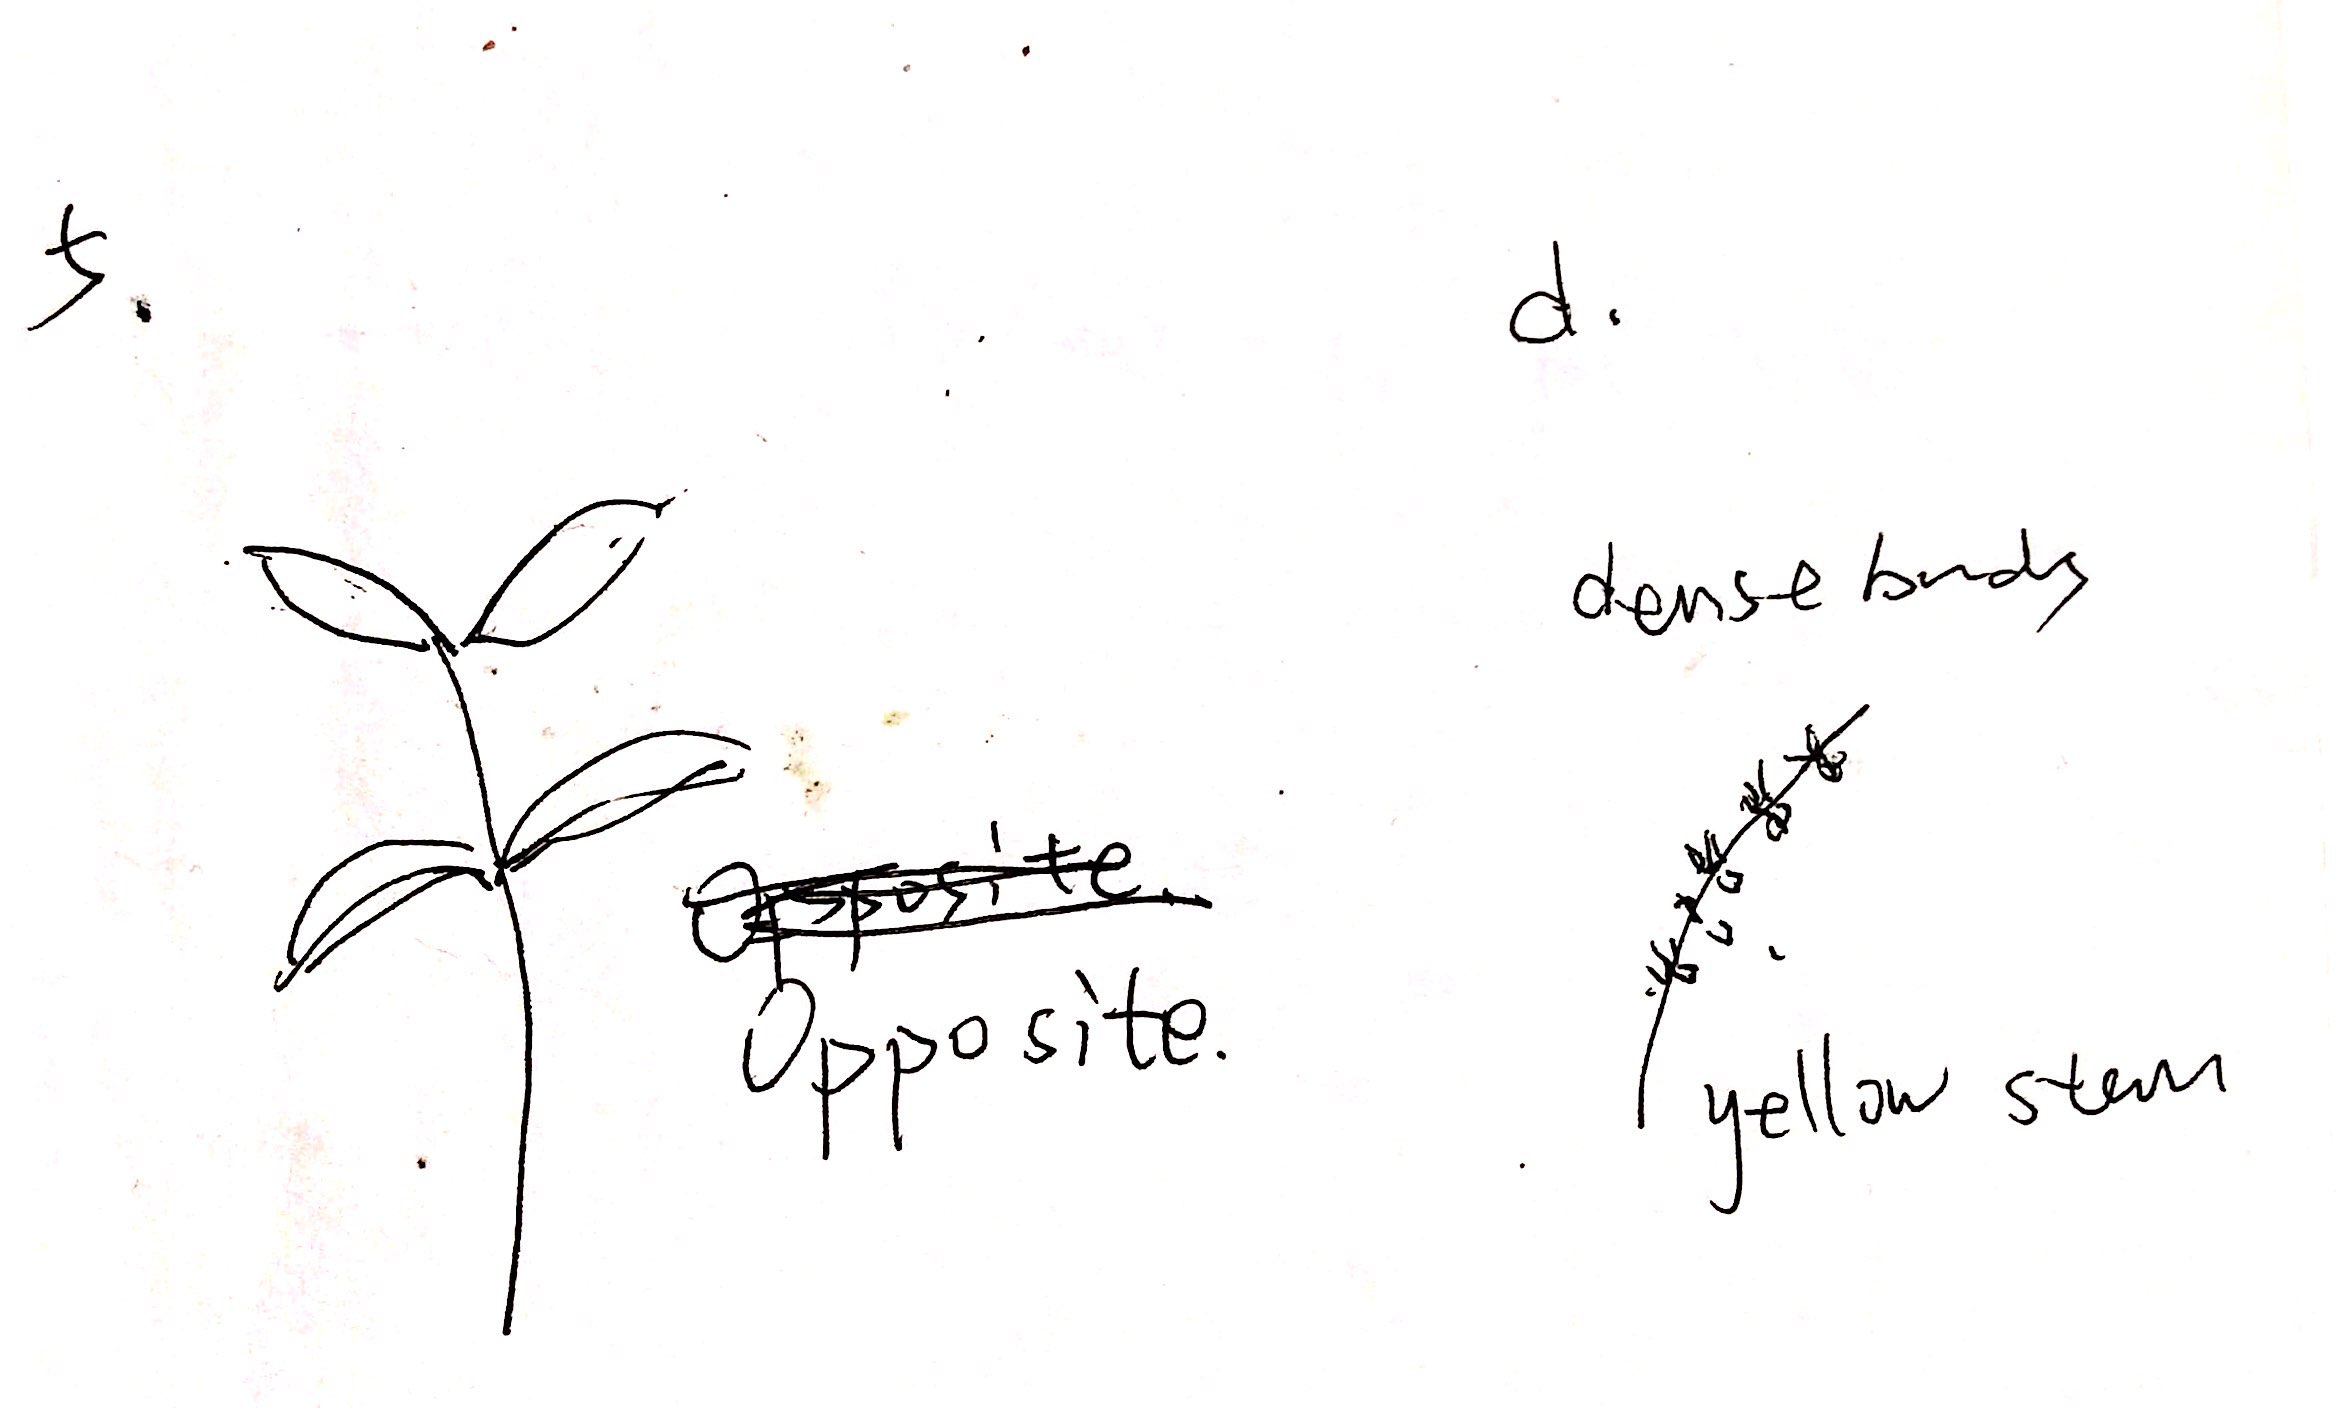 5.
d.
dense buds
Opposite.
Opposite.
yellow stem